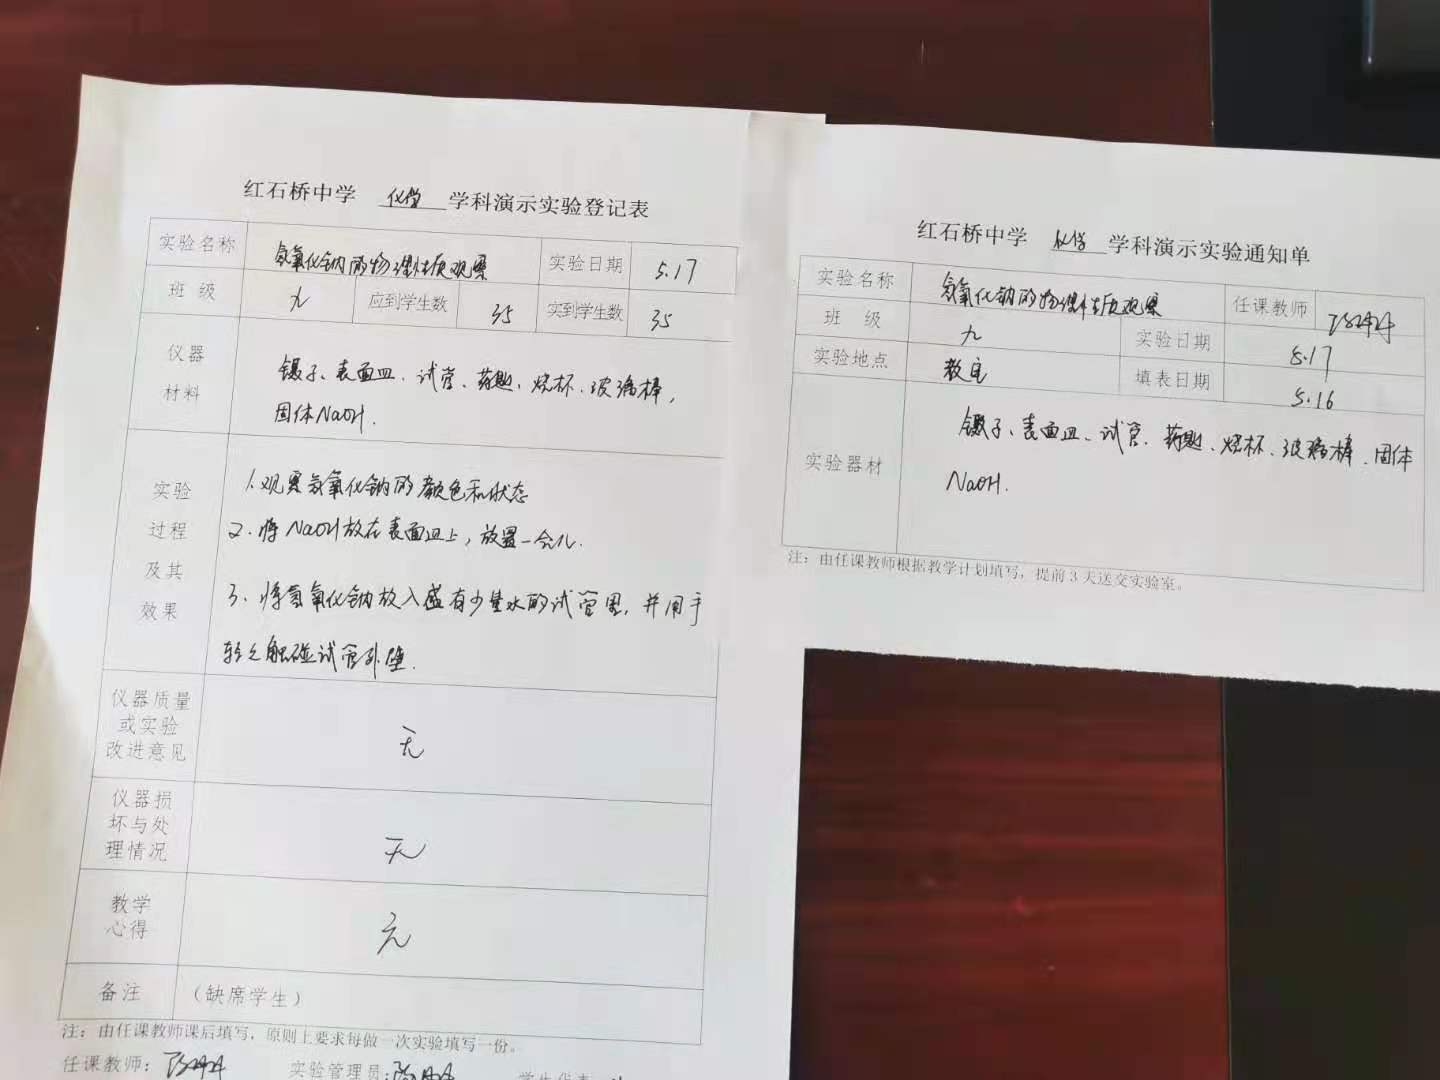 红石桥中学 化学 学科演示实验登记表
实验名称 氢氧化钠的物理性质观察 实验日期 5.17
班 级 九 应到学生数 35 实到学生数 35
仪器
材料
镊子、表面皿、试管、药匙、烧杯、玻璃棒,
固体NaOH.
实验
过程
及其
效果
1.观察氢氧化钠的颜色和状态
2.将NaOH放在表面皿上,放置一会儿.
3.将氢氧化钠放入盛有少量水的试管里,并用手
轻轻触碰试管外壁.
仪器质量
或实验
改进意见
无
仪器损
坏与处
理情况
无
教学
心得
无
备注 (缺席学生)
注:由任课教师课后填写,原则上要求每做一次实验填写一份。
任课教师: 实验管理员: 学生代表
红石桥中学 化学 学科演示实验通知单
实验名称 氢氧化钠的物理性质观察 任课教师
班 级 九 实验日期 5.17
实验地点 教室 填表日期 5.16
实验器材
镊子、表面皿、试管、药匙、烧杯、玻璃棒、固体
NaOH.
注:由任课教师根据教学计划填写,提前3天送交实验室。